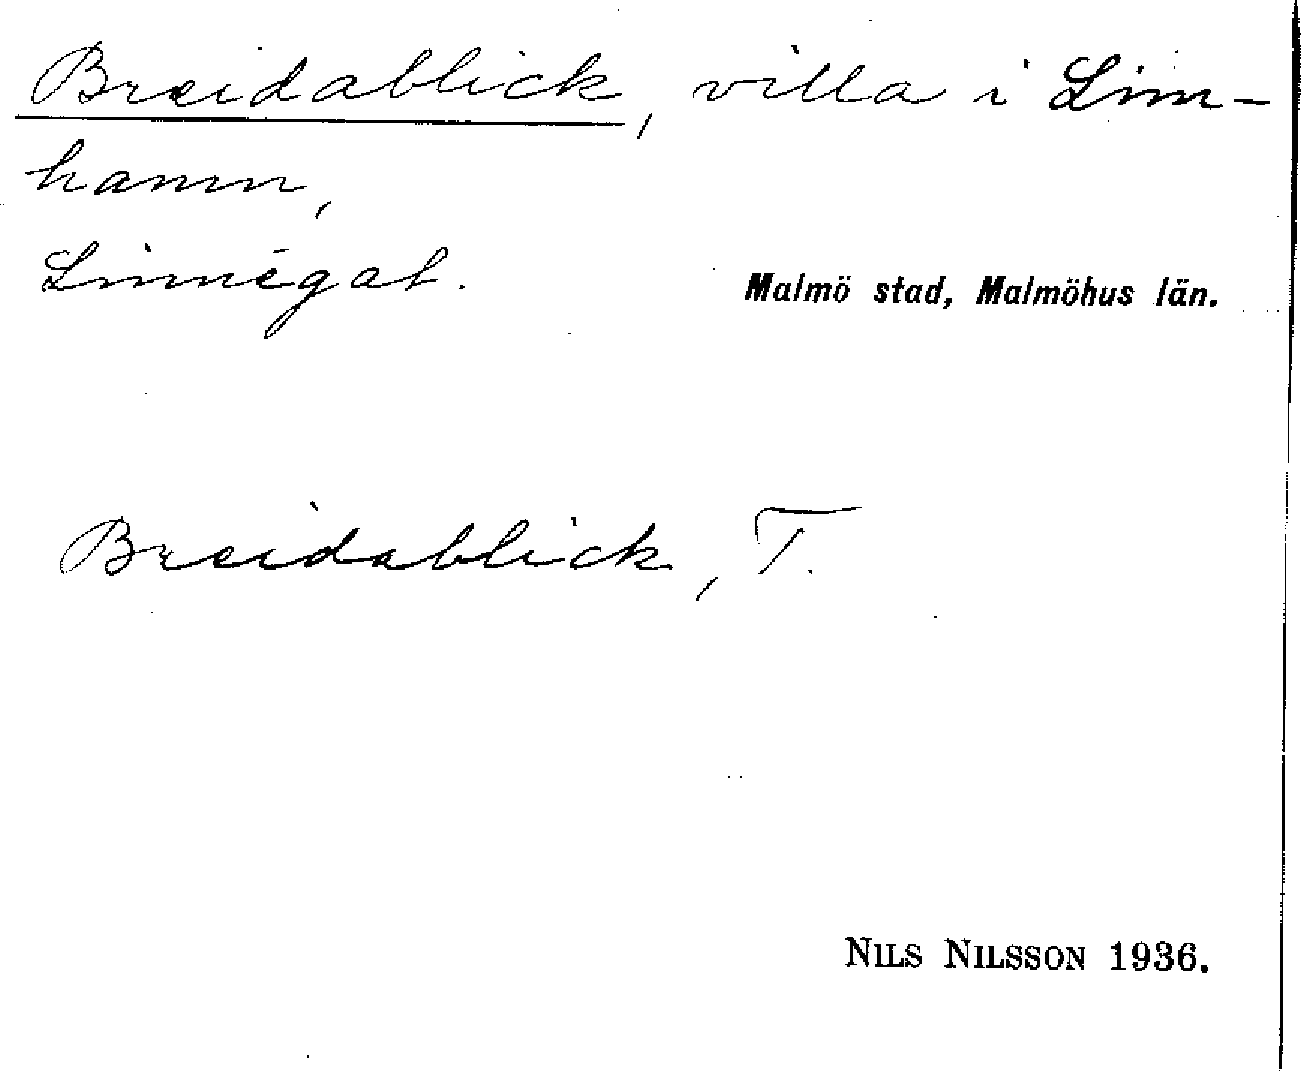 Breidablick, villa i Lim-
hamn,
Linnégat.
Malmö stad, Malmöhus län.
Breidablick, T.
NILS NILSSON 1936.